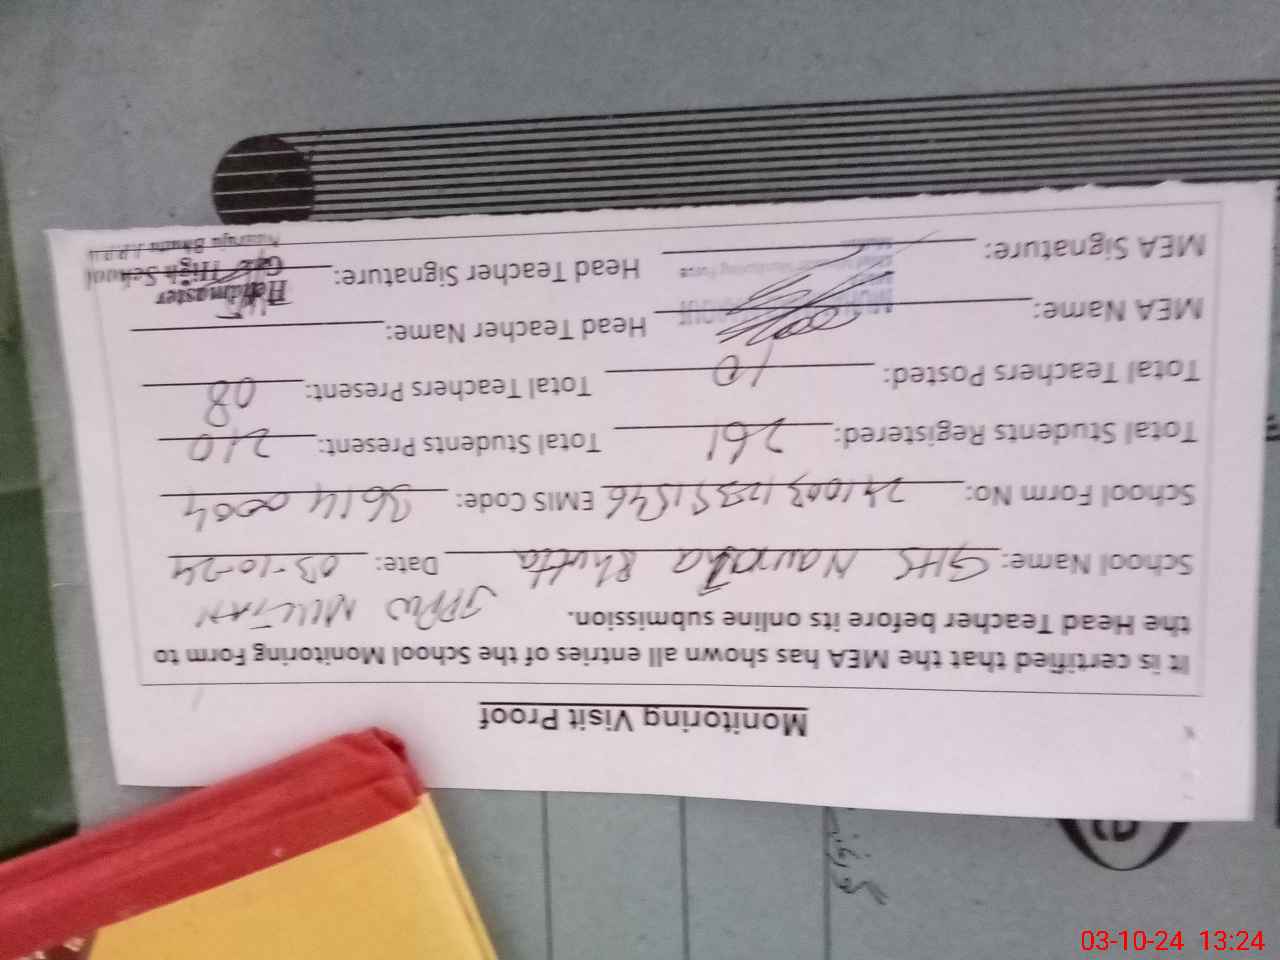 Monitoring Visit Proof
It is certified that the MEA has shown all entries of the School Monitoring Form to
the Head Teacher before its online submission. JPPW MULTAN
School Name: GHS Nauroja Bhutta Date: 03-10-24
School Form No: EMIS Code: 36140004
Total Students Registered: 261 Total Students Present: 210
Total Teachers Posted: 10 Total Teachers Present: 08
MEA Name: Head Teacher Name:
MEA Signature: Head Teacher Signature:
Headmaster
High School
03-10-24 13:24